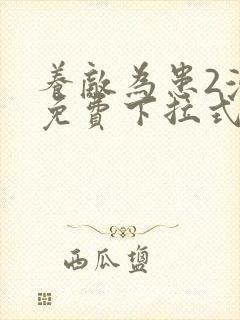 養敵為患2
免費下拉式
西瓜鹽